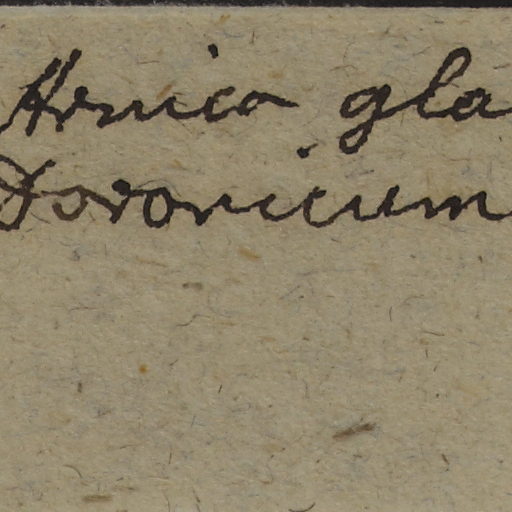 Arnica gla
Doronicum